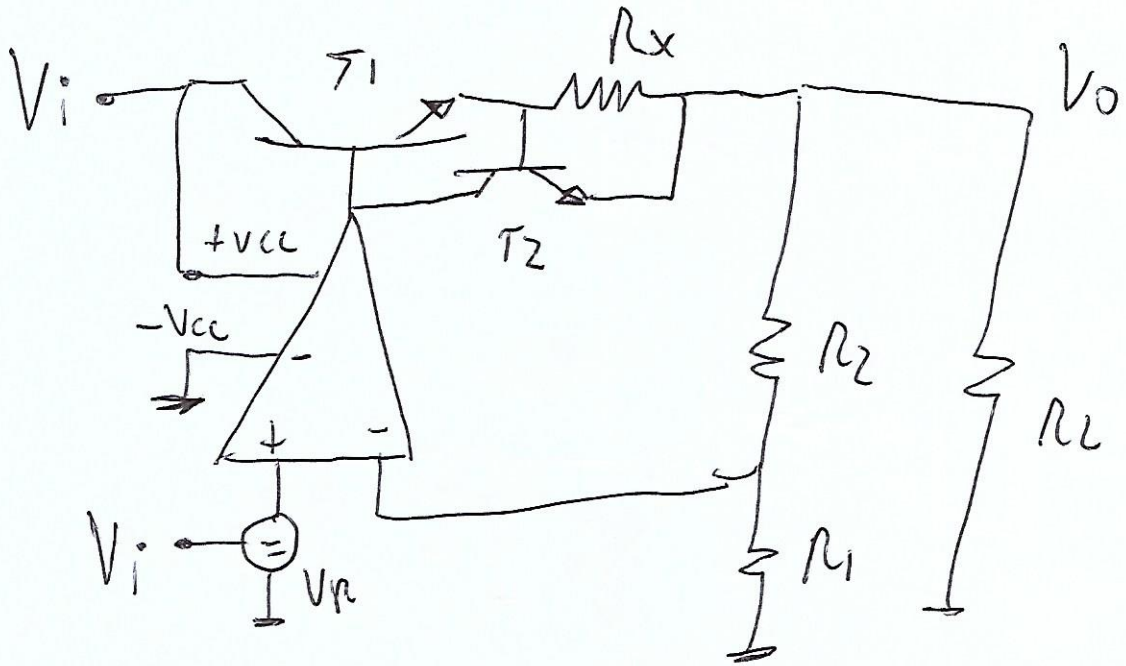 Vi T1 Rx Vo
+VCC T2
-VCC
-
R2
+ -
RL
Vi VR R1